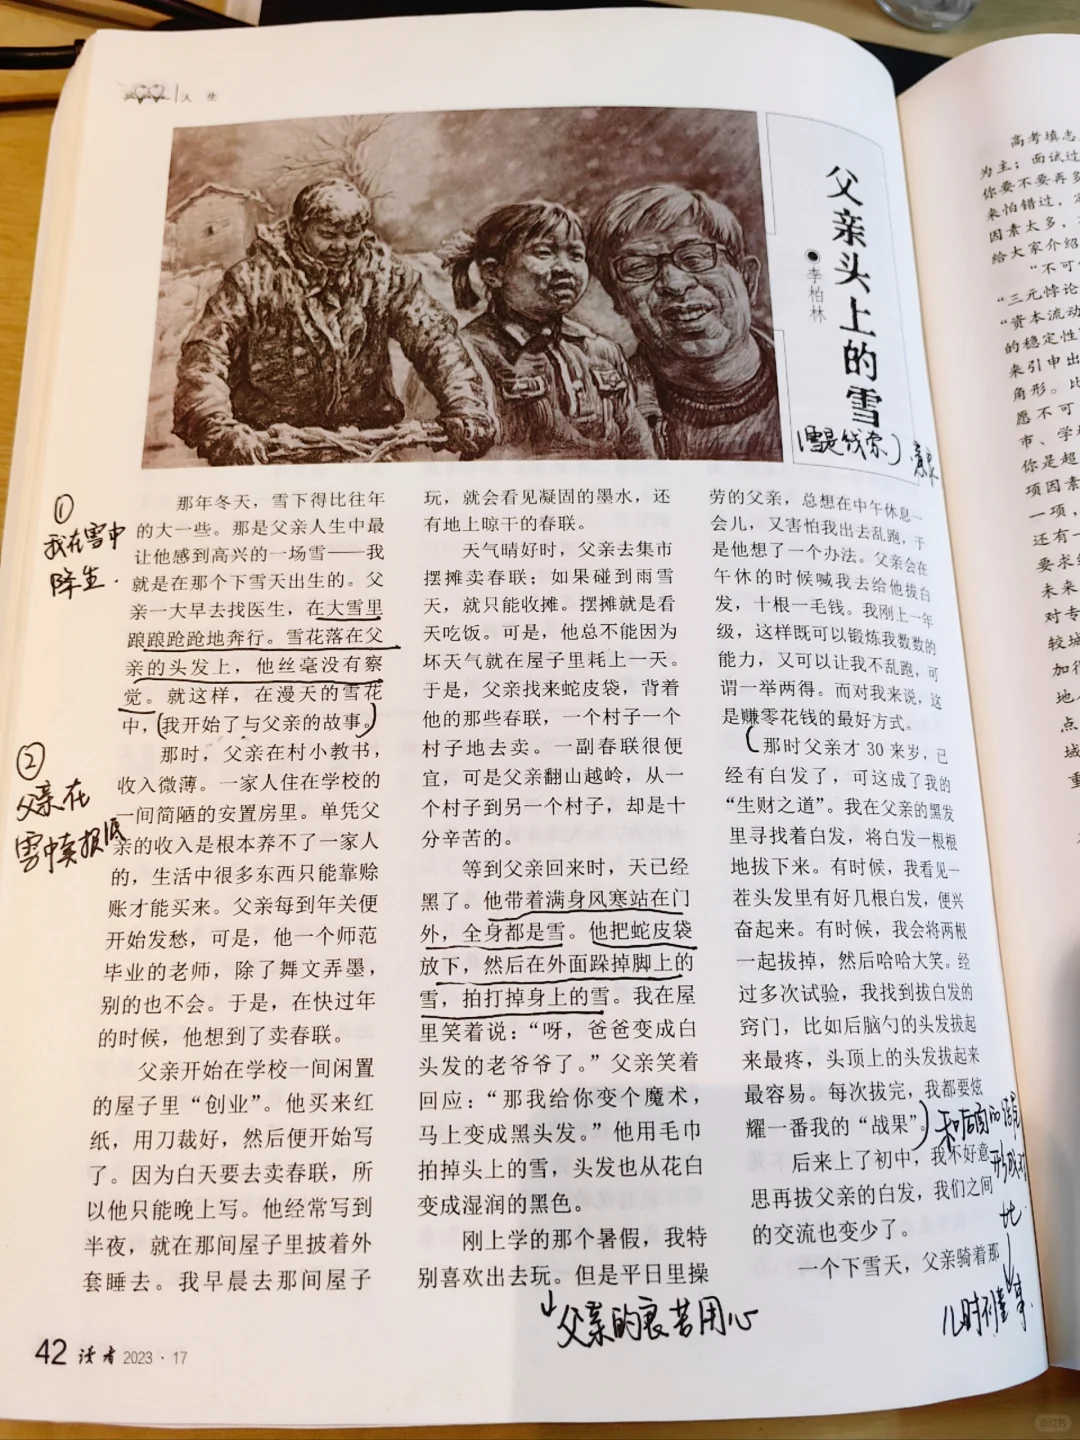 人生
父亲头上的雪
●李柏林
(雪是线索)
①
我在雪中
降生.
②
父亲在
那年冬天，雪下得比往年
的大一些。那是父亲人生中最
让他感到高兴的一场雪——我
就是在那个下雪天出生的。父
亲一大早去找医生，在大雪里
踉踉跄跄地奔行。雪花落在父
亲的头发上，他丝毫没有察
觉。就这样，在漫天的雪花
中，(我开始了与父亲的故事。)
那时，父亲在村小教书，
收入微薄。一家人住在学校的
一间简陋的安置房里。单凭父
亲的收入是根本养不了一家人
的，生活中很多东西只能靠赊
账才能买来。父亲每到年关便
开始发愁，可是，他一个师范
毕业的老师，除了舞文弄墨，
别的也不会。于是，在快过年
的时候，他想到了卖春联。
父亲开始在学校一间闲置
的屋子里“创业”。他买来红
纸，用刀裁好，然后便开始写
了。因为白天要去卖春联，所
以他只能晚上写。他经常写到
半夜，就在那间屋子里披着外
套睡去。我早晨去那间屋子
玩，就会看见凝固的墨水，还
有地上晾干的春联。
天气晴好时，父亲去集市
摆摊卖春联；如果碰到雨雪
天，就只能收摊。摆摊就是看
天吃饭。可是，他总不能因为
坏天气就在屋子里耗上一天。
于是，父亲找来蛇皮袋，背着
他的那些春联，一个村子一个
村子地去卖。一副春联很便
宜，可是父亲翻山越岭，从一
个村子到另一个村子，却是十
分辛苦的。
等到父亲回来时，天已经
黑了。他带着满身风寒站在门
外，全身都是雪。他把蛇皮袋
放下，然后在外面跺掉脚上的
雪，拍打掉身上的雪。我在屋
里笑着说：“呀，爸爸变成白
头发的老爷爷了。”父亲笑着
回应：“那我给你变个魔术，
马上变成黑头发。”他用毛巾
拍掉头上的雪，头发也从花白
变成湿润的黑色。
刚上学的那个暑假，我特
别喜欢出去玩。但是平日里操
父亲的良苦用心
劳的父亲，总想在中午休息一
会儿，又害怕我出去乱跑，于
是他想了一个办法。父亲会在
午休的时候喊我去给他拔白
发，十根一毛钱。我刚上一年
级，这样既可以锻炼我数数的
能力，又可以让我不乱跑，可
谓一举两得。而对我来说，这
是赚零花钱的最好方式。
(那时父亲才30来岁，已
经有白发了，可这成了我的
“生财之道”。我在父亲的黑发
里寻找着白发，将白发一根根
地拔下来。有时候，我看见一
茬头发里有好几根白发，便兴
奋起来。有时候，我会将两根
一起拔掉，然后哈哈大笑。经
过多次试验，我找到拔白发的
窍门，比如后脑勺的头发拔起
来最疼，头顶上的头发拔起来
最容易。每次拔完，我都要炫
耀一番我的“战果”。)
后来上了初中，我不好意
思再拔父亲的白发，我们之间
的交流也变少了。
一个下雪天，父亲骑着那
和后面的
形成对
比
儿时不懂事.
42 读者 2023·17
高考填志
为主；面试过
你要不要再多
来怕错过，
因素太多，
给大家介绍
“不可
“三元悖论
“资本流动
的稳定性
来引申出
角形。比
愿不可
市、学
你是超
项因素
一项，
还有一
要求
未来
对专
较城
加很
地
点
域
重
小红书